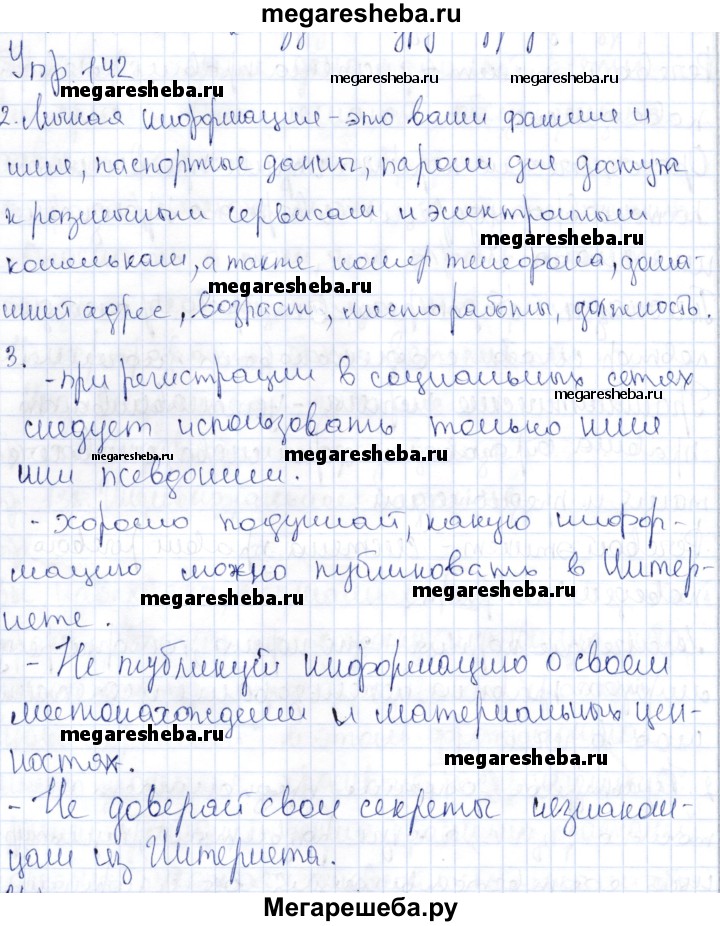 megaresheba.ru
Упр. 142
megaresheba.ru megaresheba.ru
megaresheba.ru
2. Личная информация - это ваши фамилия и
имя, паспортные данные, пароли для доступа
к различным сервисам и электронным
megaresheba.ru
кошелькам, а также номер телефона, дома-
megaresheba.ru
шний адрес, возраст, место работы, должность.
3.
- при регистрации в социальных сетях
megaresheba.ru
следует использовать только имя
megaresheba.ru megaresheba.ru
или псевдоним.
- хорошо подумай, какую инфор-
мацию можно публиковать в Интер-
megaresheba.ru megaresheba.ru
нете.
- Не публикуй информацию о своем
местонахождении и материальных цен-
megaresheba.ru megaresheba.ru
ностях.
- Не доверяй свои секреты незнаком-
цам из Интернета.
Мегарешеба.ру